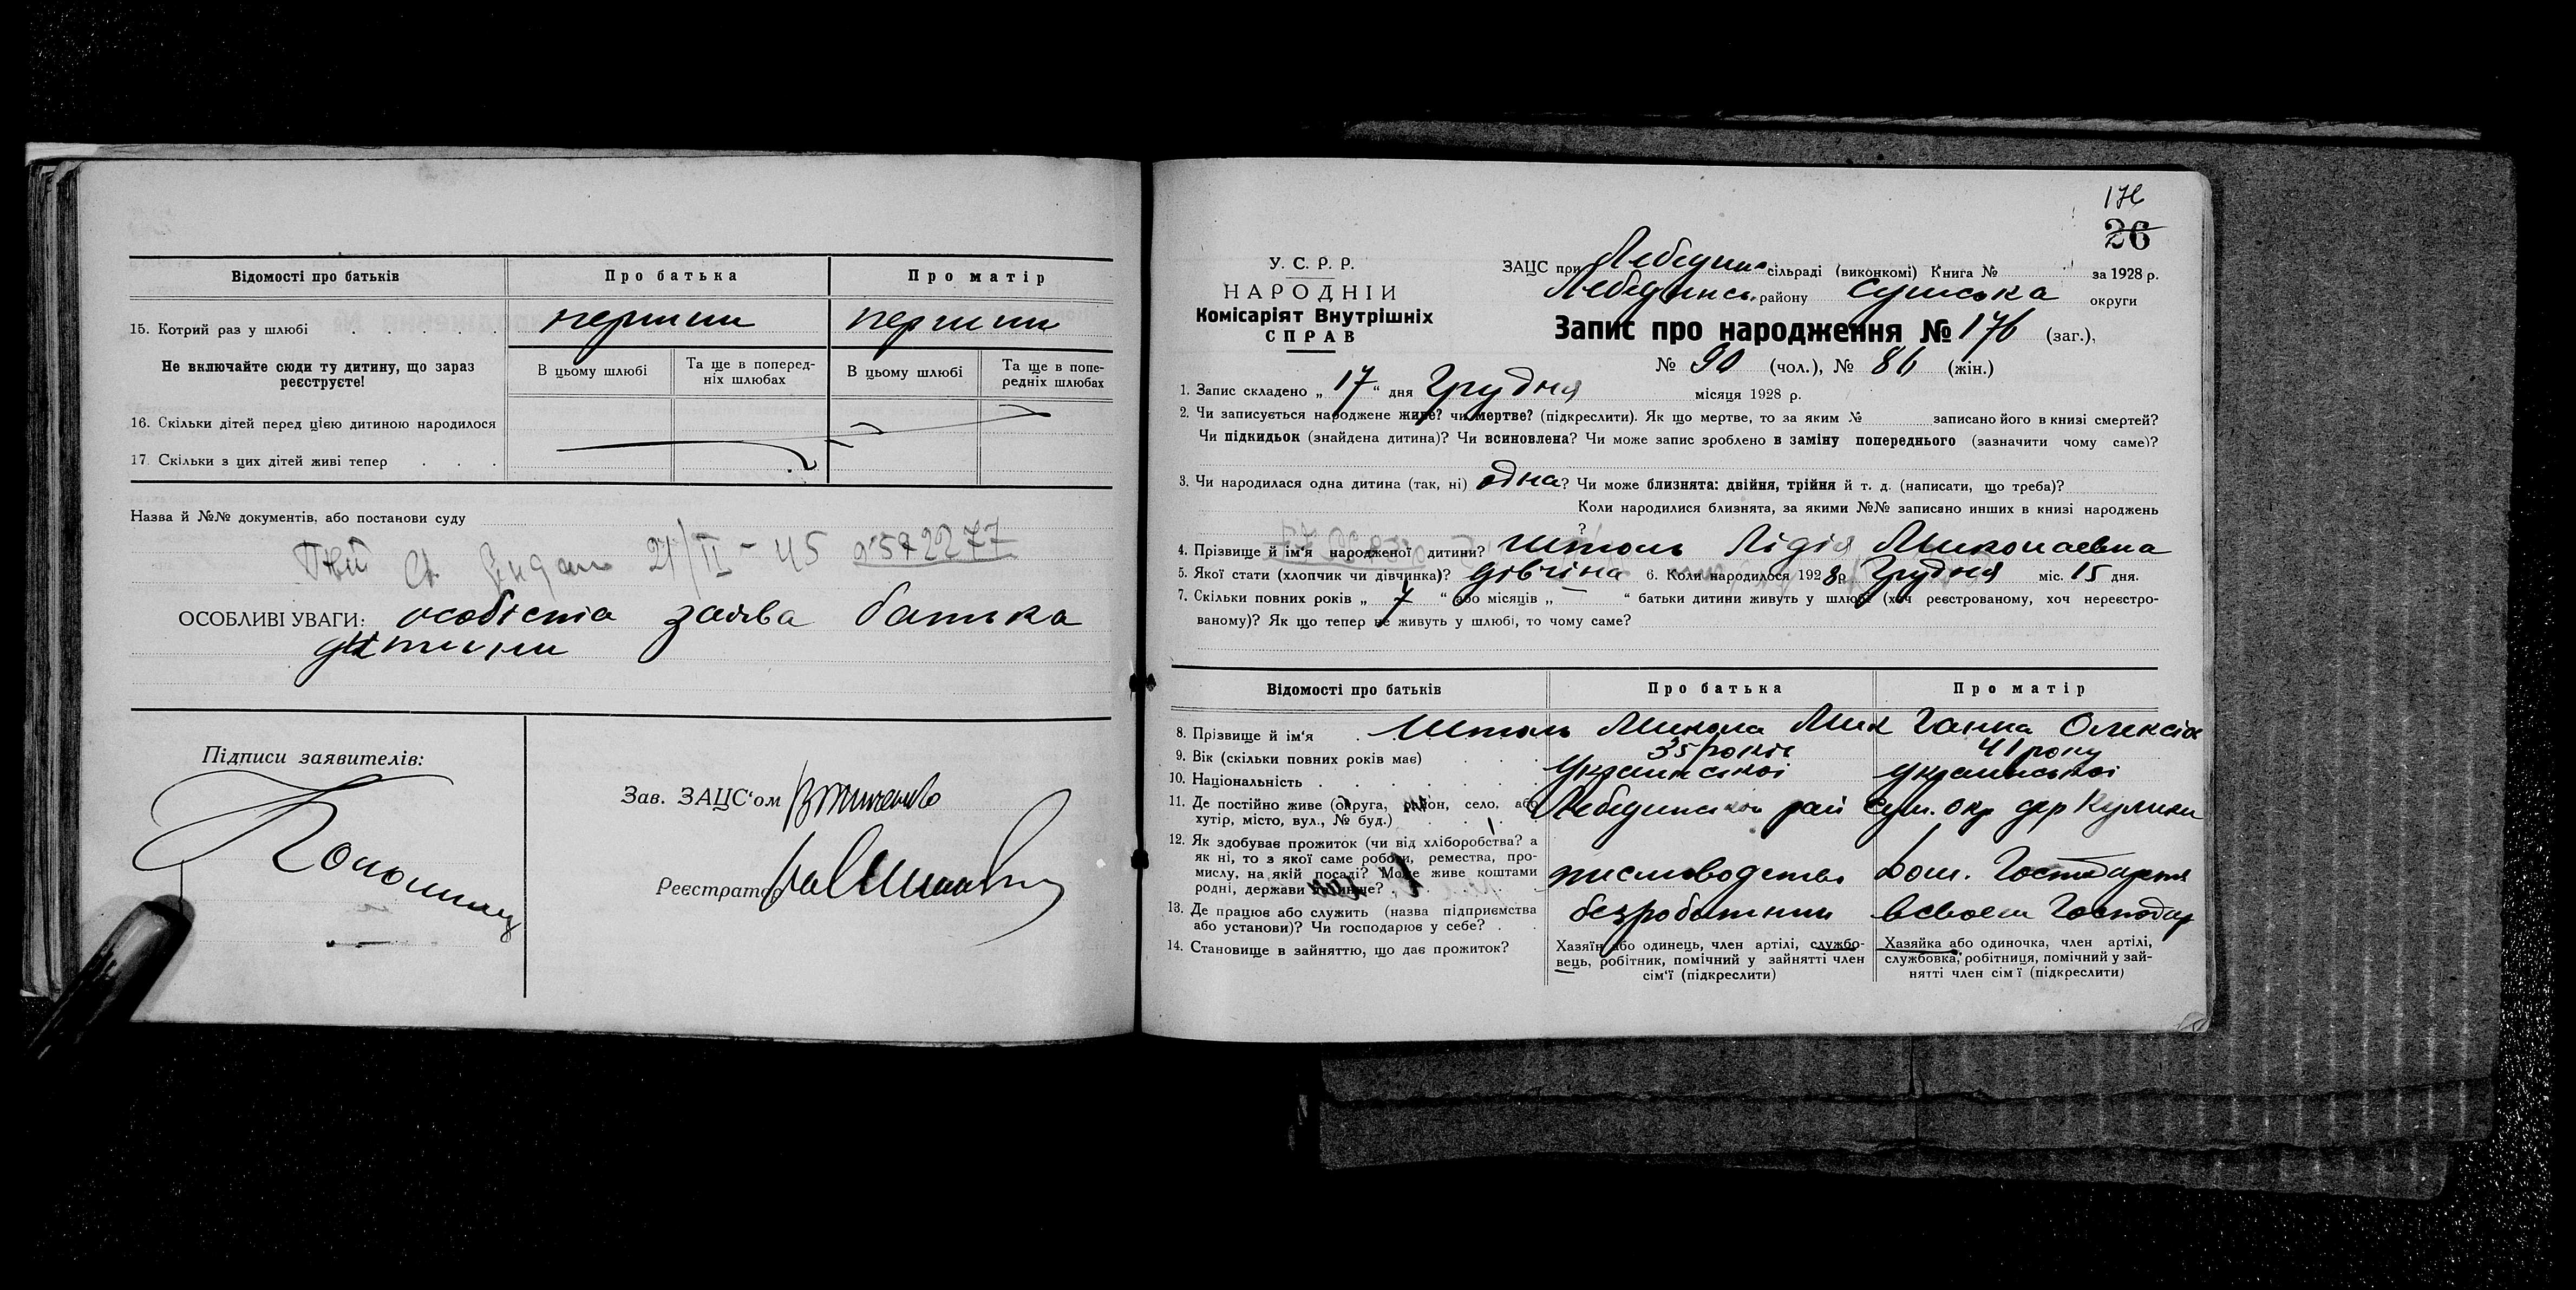 Відомості про батьків
Про батька
Про матір
15. Котрий раз у шлюбі
перший
перший
Не включайте сюди ту дитину, що зараз
реєструєте!
В цьому шлюбі
Та ще в поперед-
ніх шлюбах
В цьому шлюбі
Та ще в попе-
редніх шлюбах
16. Скільки дітей перед цією дитиною народилося
17. Скільки з цих дітей живі тепер
Назва й №№ документів, або постанови суду
21/II - 45 №592277
ОСОБЛИВІ УВАГИ: особіста заява батька
дитини
Підписи заявителів:
Зав. ЗАЦС'ом
Реєстратор
176
26
У. С. Р. Р.
НАРОДНІЙ
Комісаріят Внутрішніх
СПРАВ
ЗАЦС при Лебедин. сільраді (виконкомі) Книга № за 1928 р.
Лебединськ. району Сумська округи
Запис про народження № 176 (заг.),
№ 90 (чол.), № 86 (жін.)
1. Запис складено „ 17 “ дня Грудня місяця 1928 р.
2. Чи записується народжене живе? чи мертве? (підкреслити). Як що мертве, то за яким № записано його в книзі смертей?
Чи підкидьок (знайдена дитина)? Чи всиновлена? Чи може запис зроблено в заміну попереднього (зазначити чому саме)?
3. Чи народилася одна дитина (так, ні) одна? Чи може близнята: двійня, трійня й т. д. (написати, що треба)?
Коли народилися близнята, за якими №№ записано инших в книзі народжень
?
4. Прізвище й ім'я народженої дитини? Штоль Лідія Миколаевна
5. Якої стати (хлопчик чи дівчинка)? дівчіна 6. Коли народилося 1928 р. Грудня міс. 15 дня.
7. Скільки повних років „ 7 “ або місяців „ “ батьки дитини живуть у шлюбі (хоч реєстрованому, хоч нереєстро-
ваному)? Як що тепер не живуть у шлюбі, то чому саме?
Відомості про батьків
Про батька
Про матір
8. Прізвище й ім'я
Штоль Микола Мик
Ганна Олексіє
9. Вік (скільки повних років має)
35 років
41 року
10. Національність
Українськоі
Українськоі
11. Де постійно живе (округа, район, село, або
хутір, місто, вул., № буд.)
Лебединськой рай Сум. окр дер Кулики
12. Як здобуває прожиток (чи від хліборобства? а
як ні, то з якої саме роботи, ремества, про-
мислу, на якій посаді? Може живе коштами
родні, держави то инше?
писмоводством
Дом. Господарня
13. Де працює або служить (назва підприємства
або установи)? Чи господарює у себе?
безроботний
в своем Господар
14. Становище в зайняттю, що дає прожиток?
Хазяїн або одинець, член артілі, службо-
вець, робітник, помічний у зайнятті член
сім'ї (підкреслити)
Хазяйка або одиночка, член артілі,
службовка, робітниця, помічний у зай-
нятті член сім'ї (підкреслити)